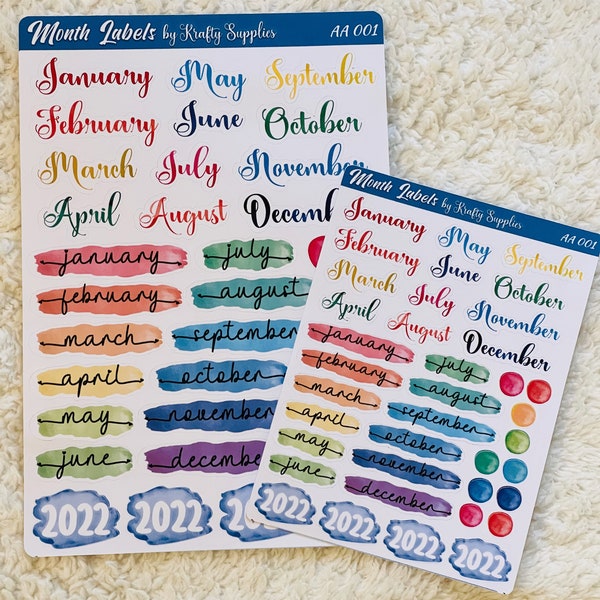 Month Labels by Krafty Supplies AA 001
January May September
February June October
March July November
April August December
january july
february august
march september
april october
may november
june december
2022 2022 2
Month Labels by Krafty Supplies AA 001
January May September
February June October
March July November
April August December
january july
february august
march september
april october
may november
june december
2022 2022 2022 2022